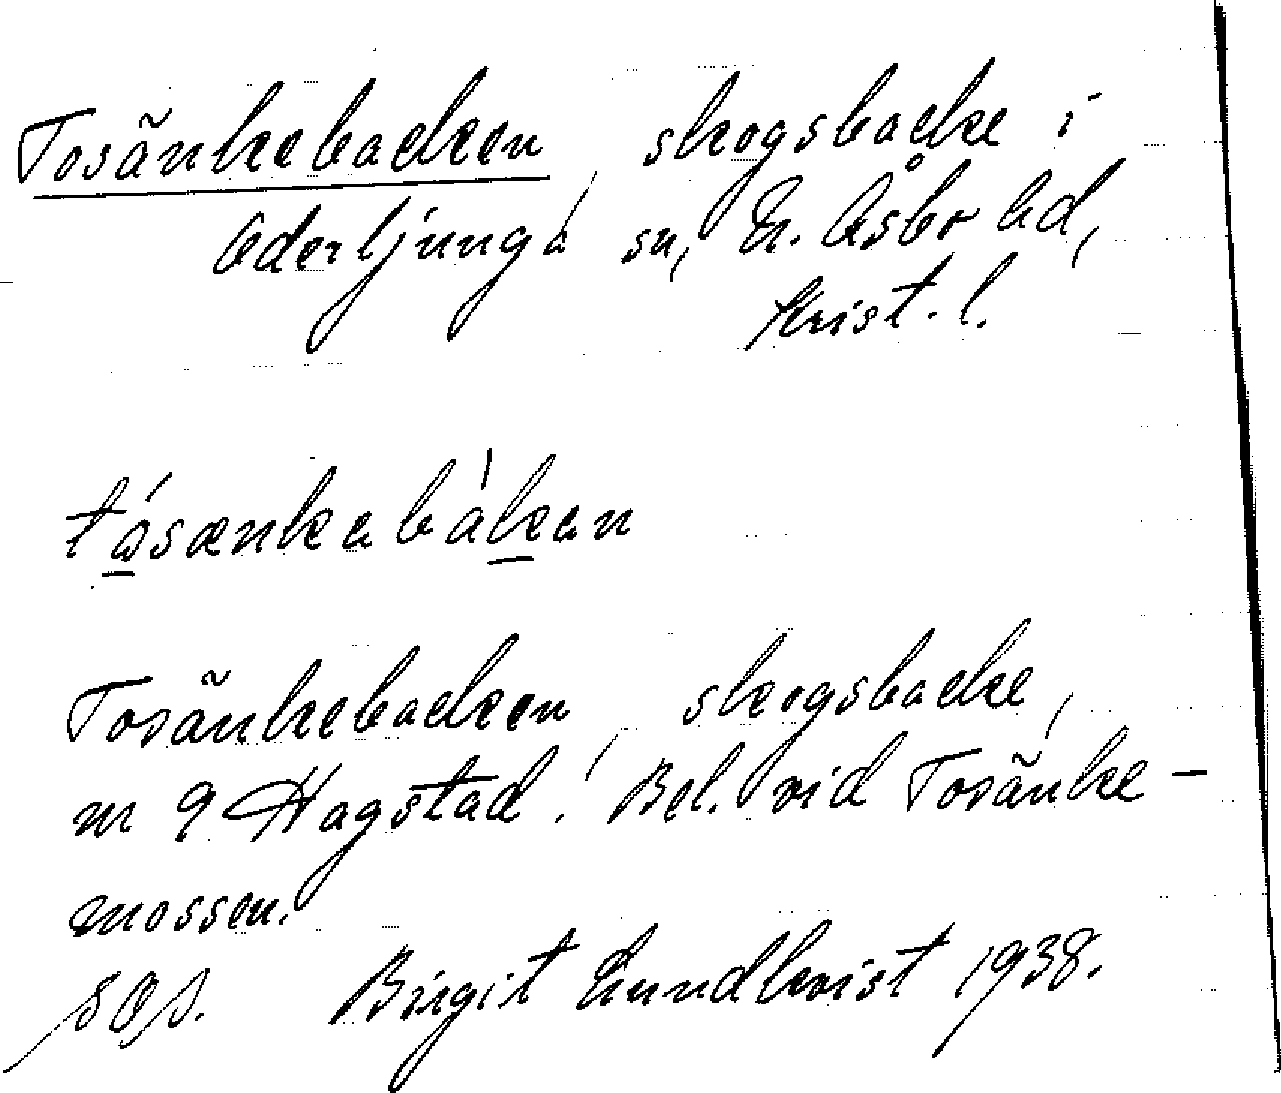 Tosänkebacken, skogsbacke i
Oderljunga sn, N. Åsbo hd,
Krist. l.
tósænkabák̲an
Tosänkebacken, skogsbacke,
nr 9 Hagstad. Bel. vid Tosänke-
mossen.
Birgit Lundkvist 1938.